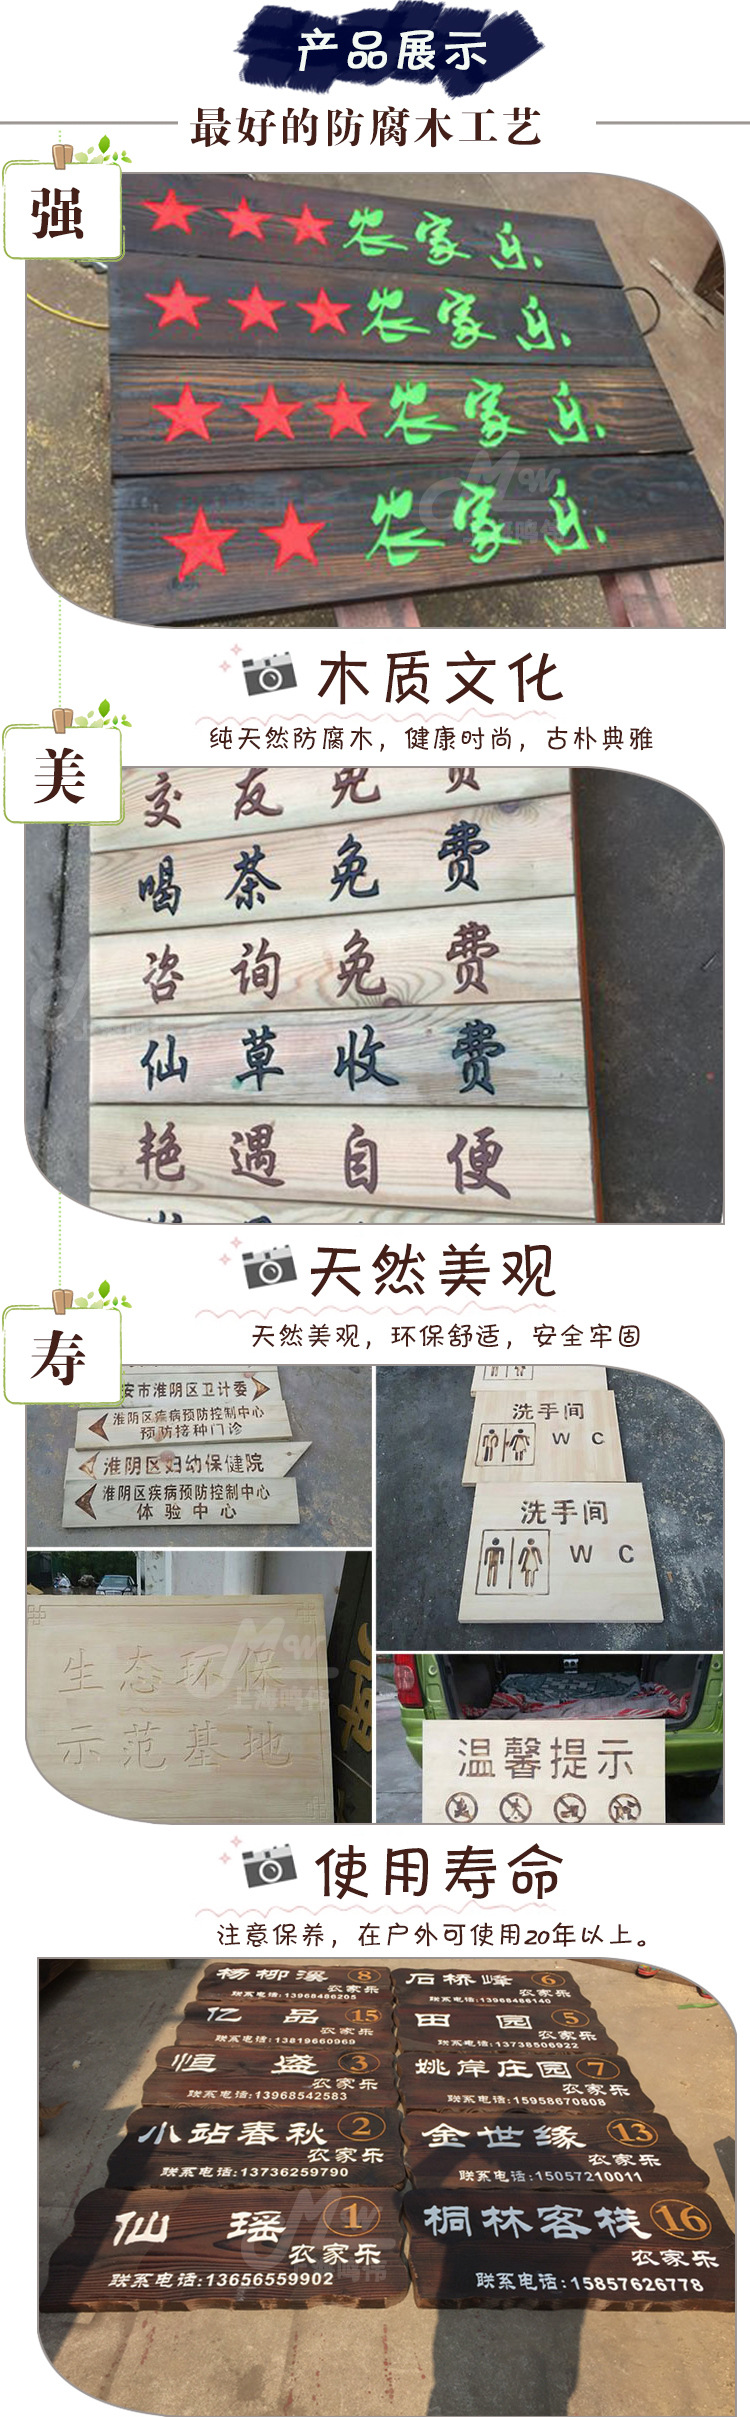 产品展示
最好的防腐木工艺
强
★★★农家乐
★★★农家乐
★★★农家乐
★★农家乐
木质文化
纯天然防腐木，健康时尚，古朴典雅
美
交友免费
喝茶免费
咨询免费
仙草收费
艳遇自便
天然美观
天然美观，环保舒适，安全牢固
寿
安市淮阴区卫计委
淮阴区疾病预防控制中心
预防接种门诊
淮阴区妇幼保健院
淮阴区疾病预防控制中心
体验中心
洗手间
WC
洗手间
WC
生态环保
示范基地
温馨提示
使用寿命
注意保养，在户外可使用20年以上。
杨柳溪 8
农家乐
联系电话:13968486205
石桥峰 6
农家乐
联系电话:13968486140
亿品 15
农家乐
联系电话:13819660969
田园 5
农家乐
联系电话:13738506922
恒盛 3
农家乐
联系电话:13968542583
姚岸庄园 7
农家乐
联系电话:15958670808
小站春秋 2
农家乐
联系电话:13736259790
金世缘 13
农家乐
联系电话:15057210011
仙瑶 1
农家乐
联系电话:13656559902
桐林客栈 16
农家乐
联系电话:15857626778